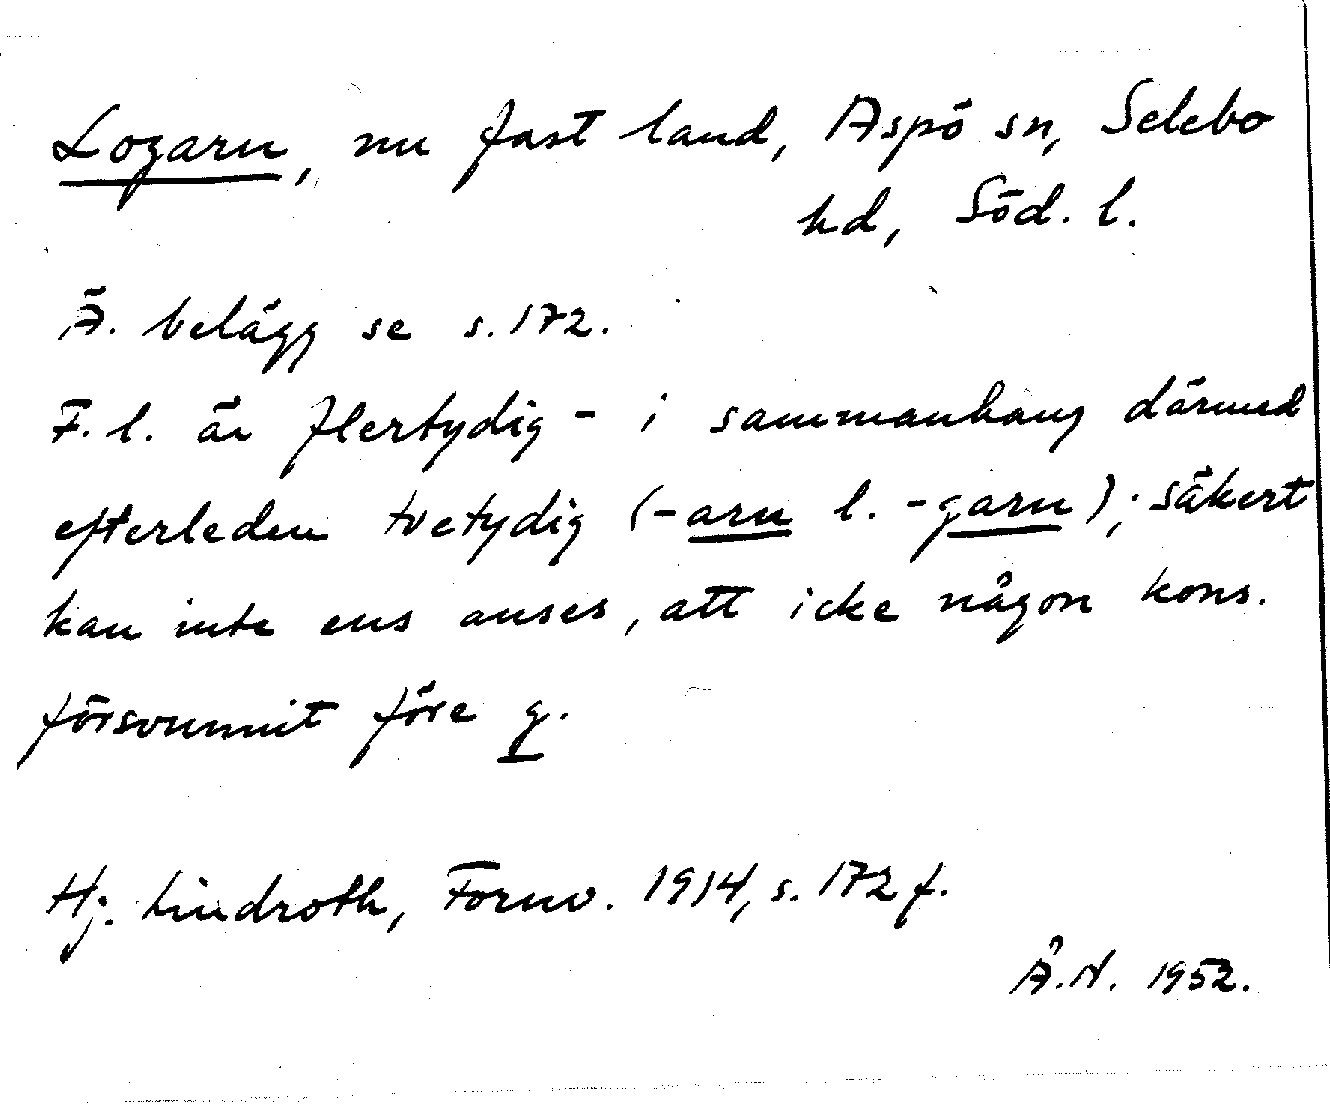 Logarn, nu fast land, Aspö sn, Selebo
hd, Söd. l.
Ä. belägg se s. 172.
F.l. är flertydig - i sammanhang därmed
efterleden tvetydig (-arn l. -garn); säkert
kan inte ens anses, att icke någon kons.
försvunnit före g.
Hj. Lindroth, Fornv. 1914, s. 172 f.
Å.N. 1952.